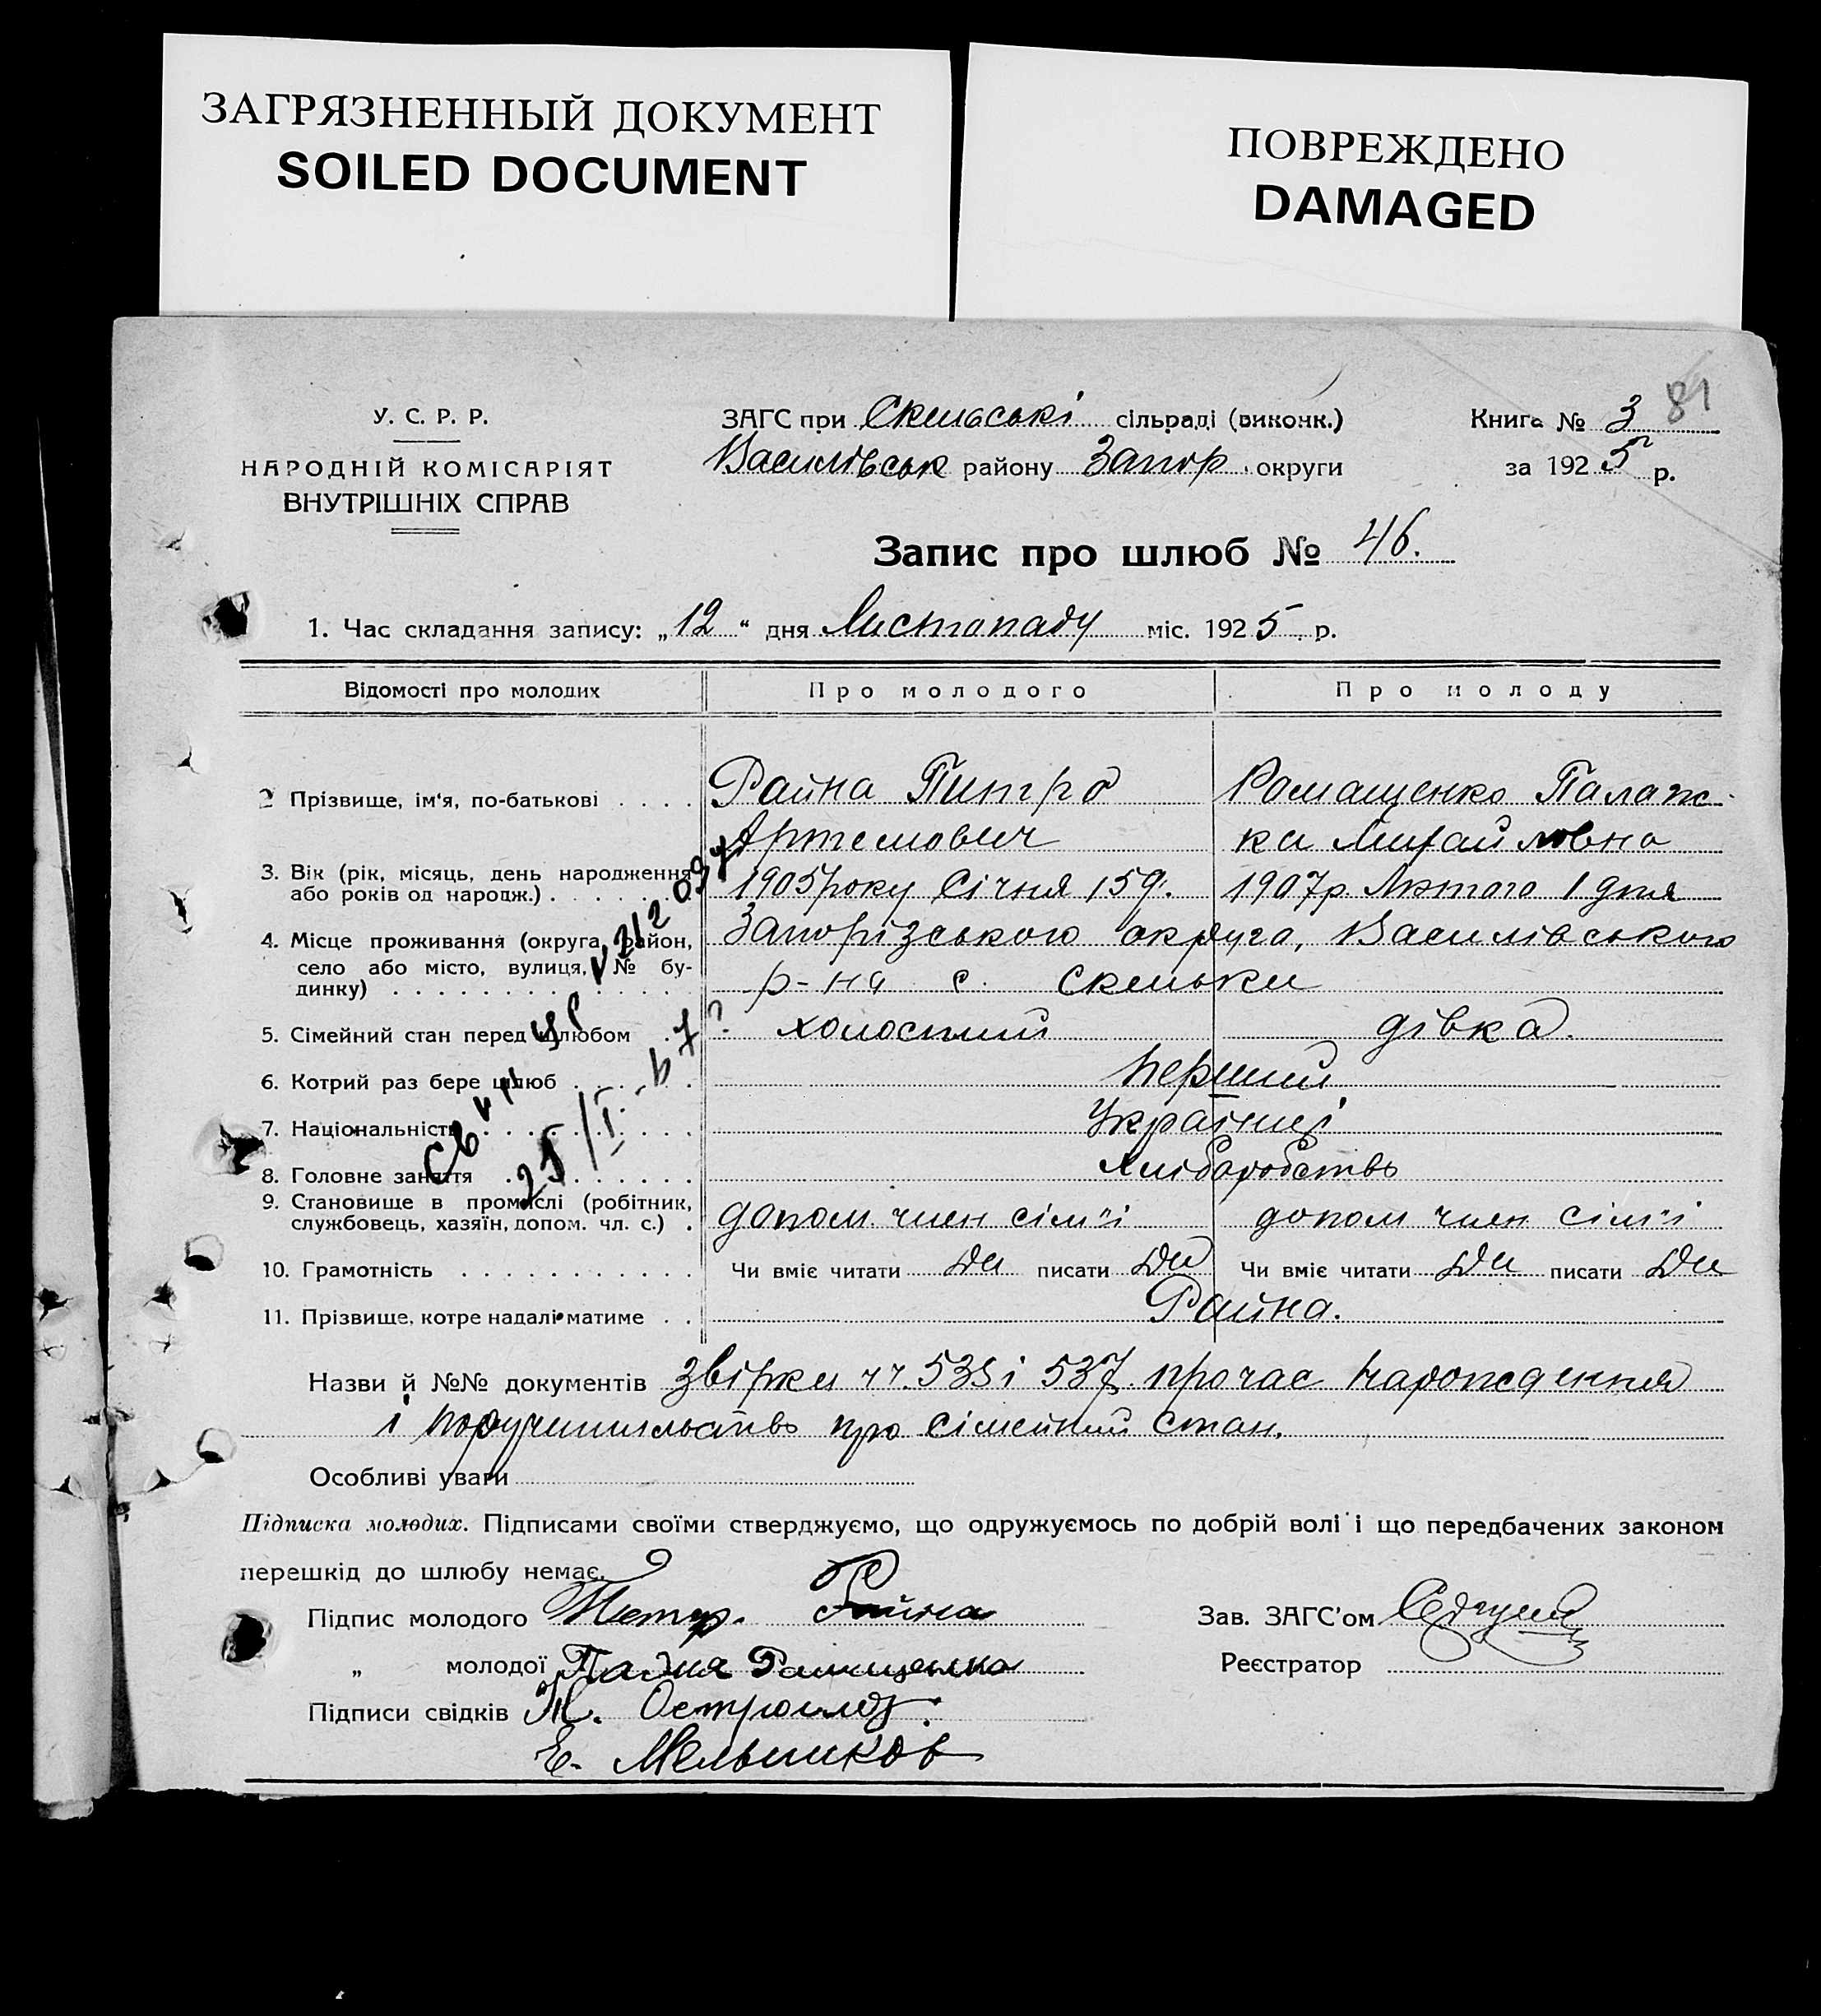 ЗАГРЯЗНЕННЫЙ ДОКУМЕНТ
SOILED DOCUMENT
ПОВРЕЖДЕНО
DAMAGED
81
У. С. Р. Р.
НАРОДНІЙ КОМІСАРІЯТ
ВНУТРІШНІХ СПРАВ
ЗАГС при Скельські сільраді (виконк.)
Василівськ району Запор. округи
Книга № 3
за 1925 р.
Запис про шлюб № 46.
1. Час складання запису: „12“ дня Листопаду міс. 1925 р.
Відомості про молодих Про молодого Про молоду
2 Прізвище, ім'я, по-батькові . . . . Райна Питро Ромащенко Палаж-
Артемович ка Михайловна
3. Вік (рік, місяць, день народження або років од народж.) 1905 року Січня 15д. 1907р. Лютого 1 дня
4. Місце проживання (округа, район, село або місто, вулиця, № будинку) Запорізського округа, Василівського
р-на с. Скельки
5. Сімейний стан перед шлюбом . ? холостий дівка.
6. Котрий раз бере шлюб . . . . . перший
7. Національність . . . . . . . . Українці
8. Головне заняття . . . . . . . Хліборобство
9. Становище в промислі (робітник, службовець, хазяїн, допом. чл. с.) . допом. член сім'ї допом член сім'ї
10. Грамотність . . . . . . . . . . . Чи вміє читати Да писати Да Чи вміє читати Да писати Да
11. Прізвище, котре надалі матиме . . Райна.
Св 25/I
Назви й №№ документів звірки чч. 535 і 537 про час народження
і поручительство про сімейний стан.
Особливі уваги
Підписка молодих. Підписами своїми стверджуємо, що одружуємось по добрій волі і що передбачених законом
перешкід до шлюбу немає.
Підпис молодого Петр. Райна Зав. ЗАГС'ом
„ молодої Ромащенко Реєстратор
Підписи свідків
Е. Мельников